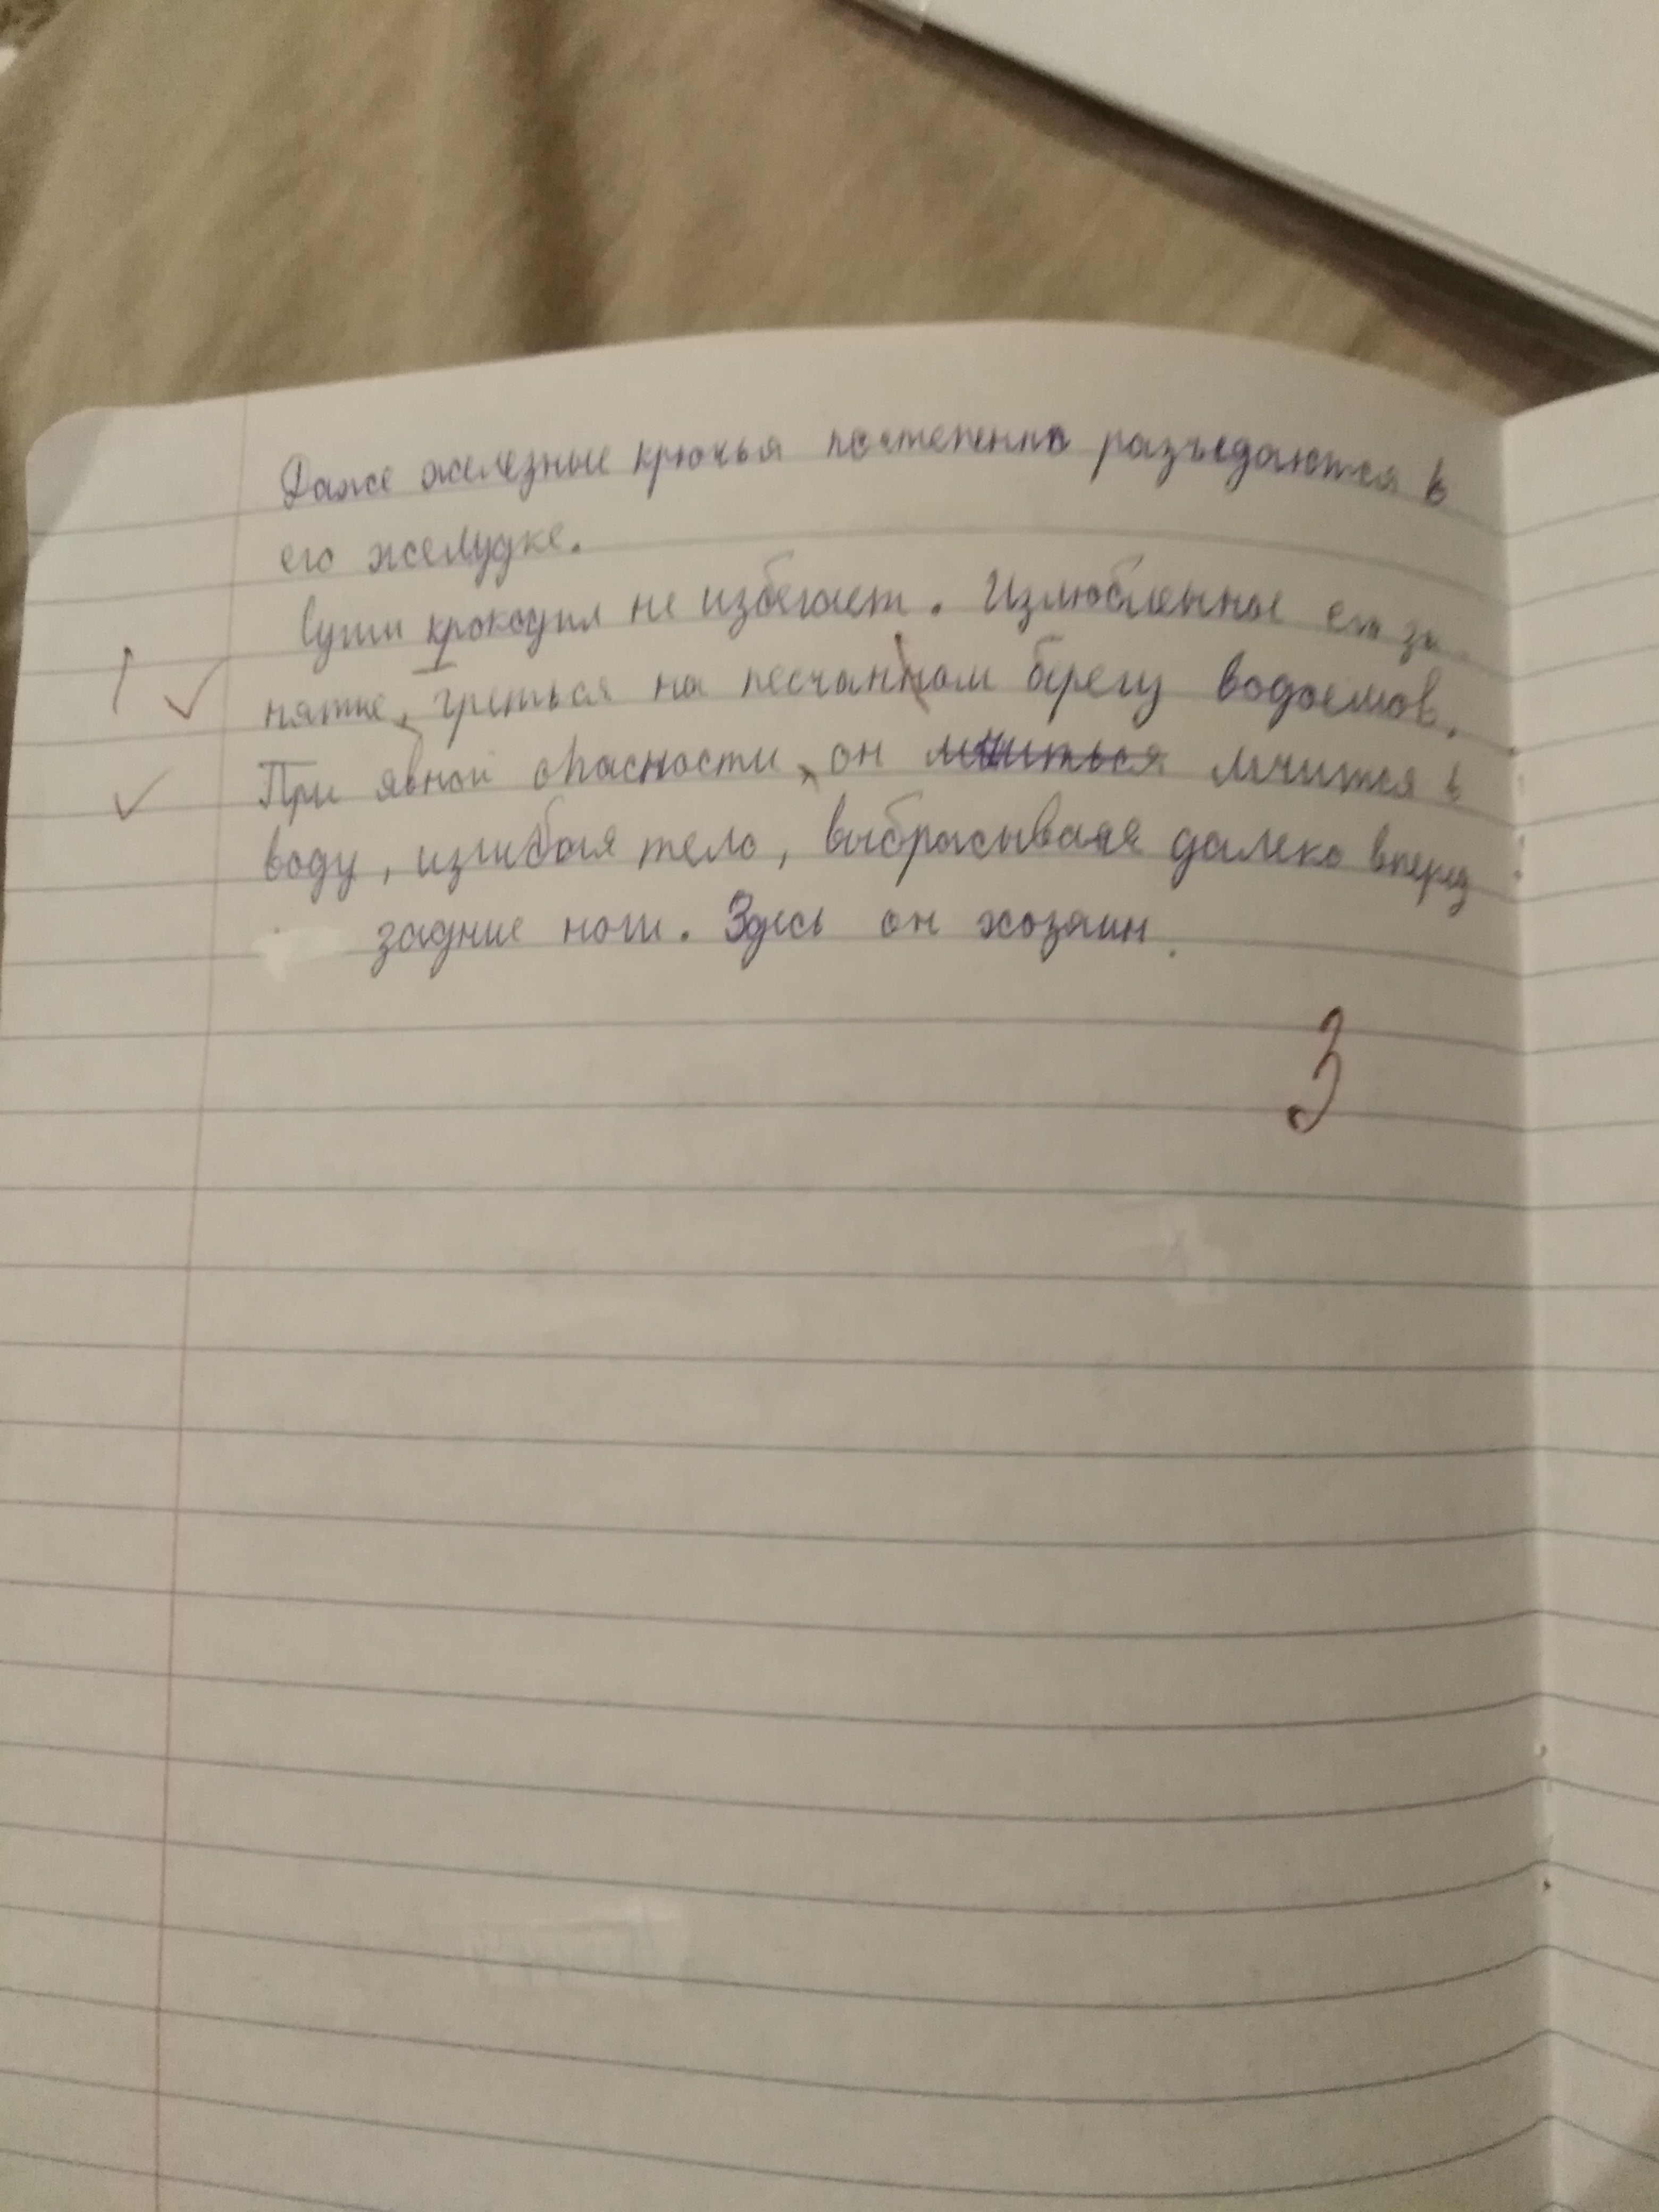 Даже железные крючья постепенно разъедаются в
его желудке.
Суши крокодил не избегает. Излюбленное его за
нятие, греться на песчанном берегу водоемов.
При явной опасности, он мчиться мчится в
воду, изгибая тело, выбрасывая далеко вперед
задние ноги. Здесь он хозяин.
3